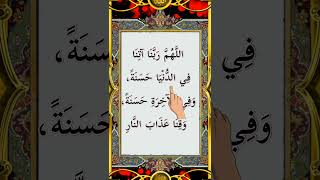 اللَّهُمَّ رَبَّنَا آتِنَا
فِي الدُّنْيَا حَسَنَةً،
وَفِي الْآخِرَةِ حَسَنَةً،
وَقِنَا عَذَابَ النَّارِ